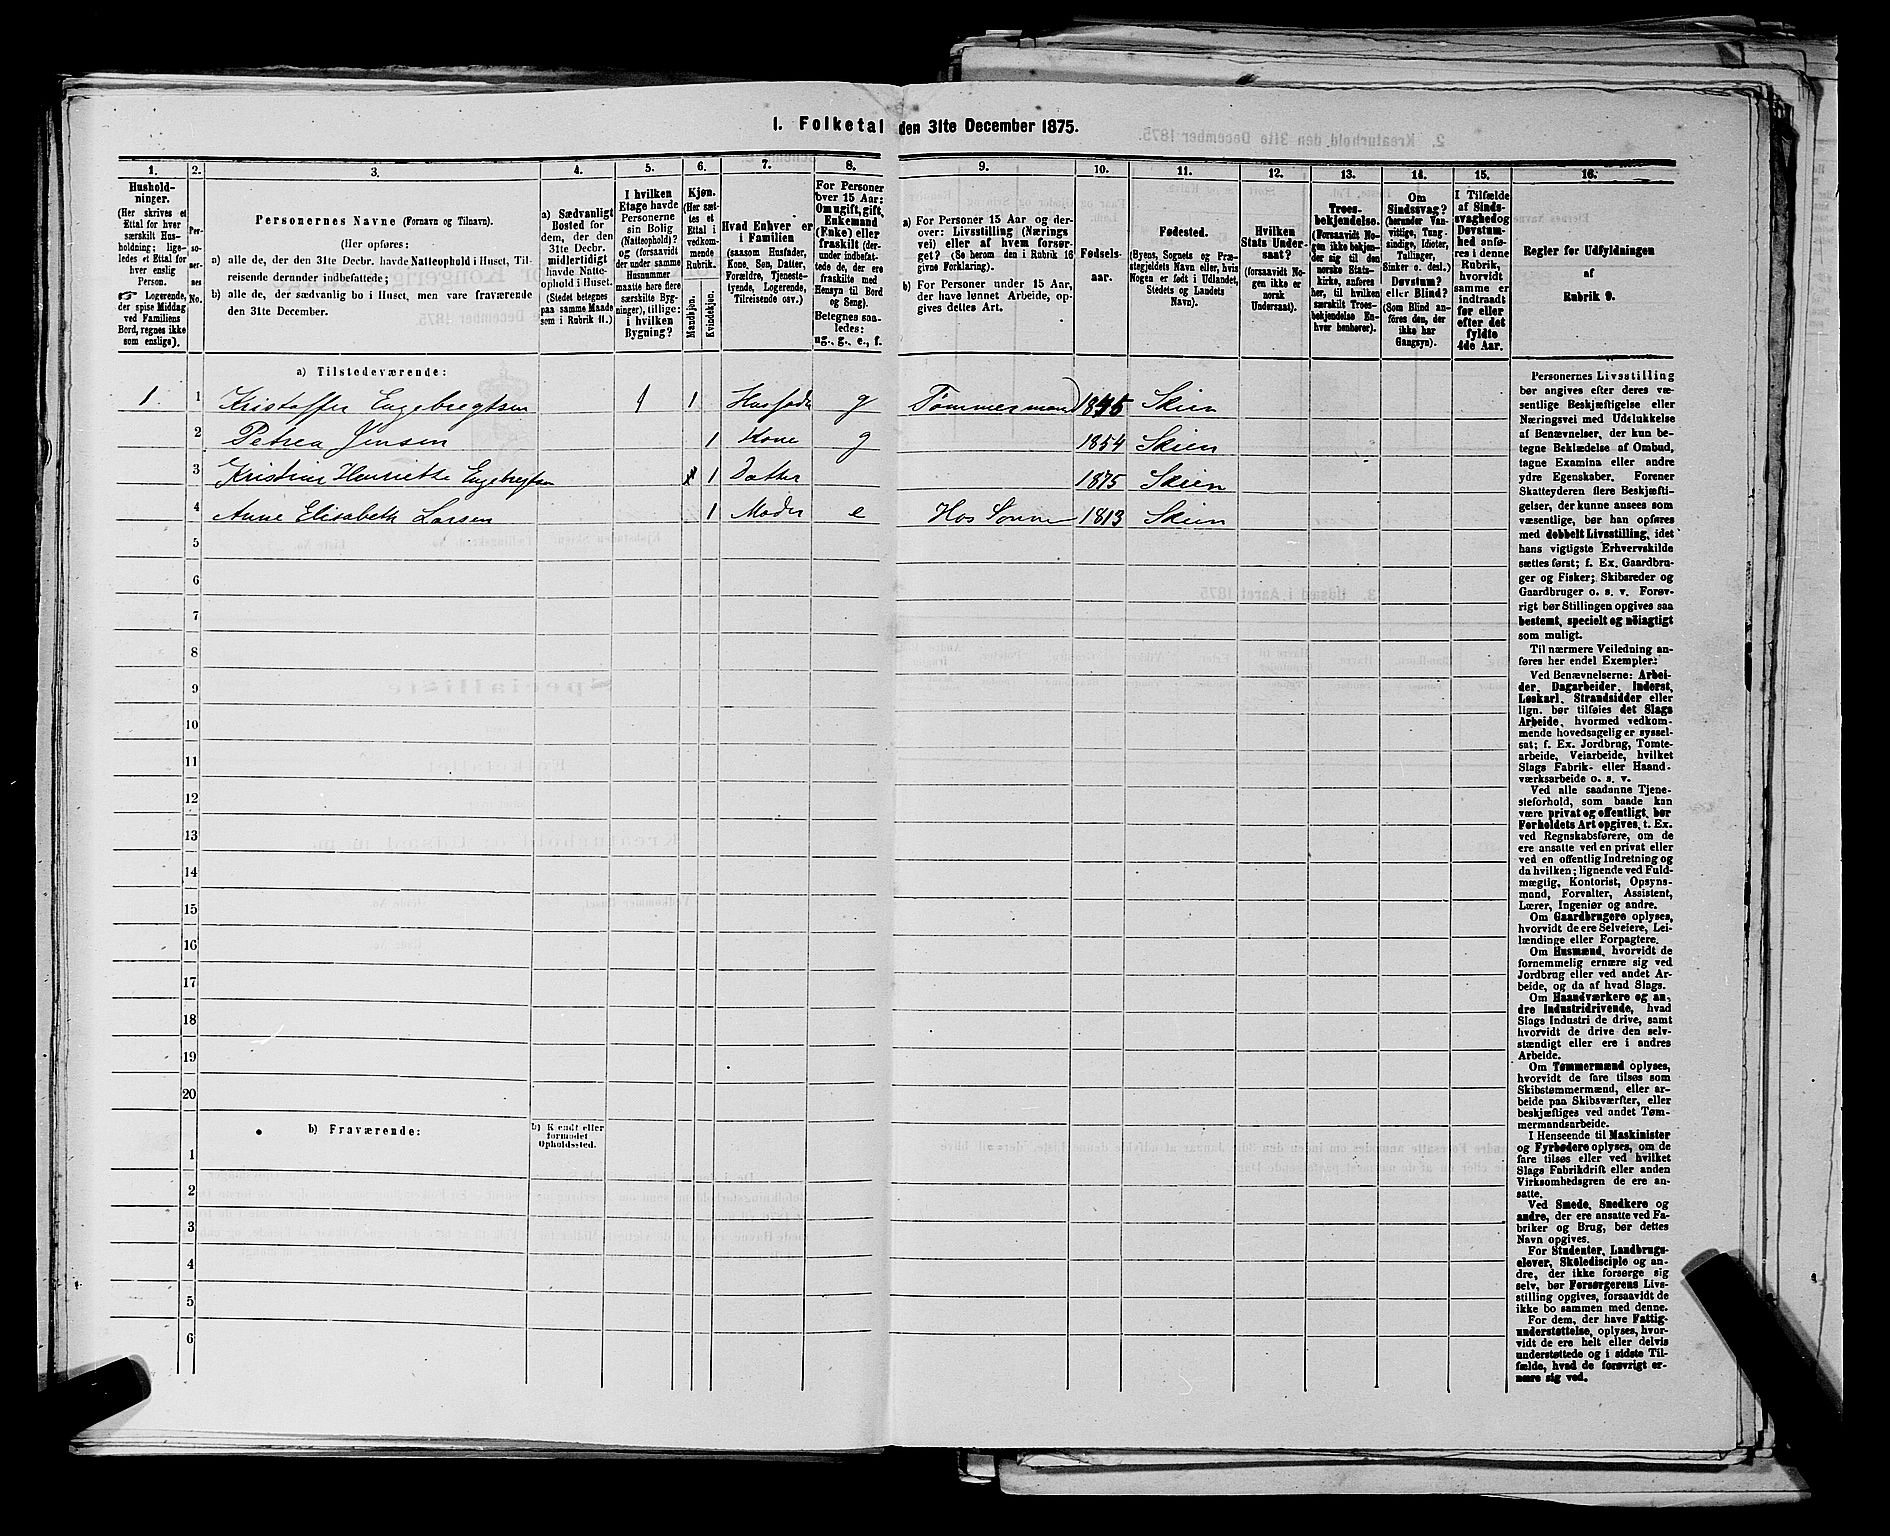 1. Folketal den 31te December 1875.
1. 2. 3. 4. 5. 6. 7. 8. 9. 10. 11. 12. 13. 14. 15. 16.
Hushold-
ninger.
(Her skrives et
Ettal for hver
særskilt Hus-
holdning; lige-
ledes et Ettal for
hver enslig
Person.
☞ Logerende,
der spise Middag
ved Familiens
Bord, regnes ikke
som enslige).
Per-
so-
ner-
nes
No.
Personernes Navne (Fornavn og Tilnavn).
(Her opføres:
a) alle de, der den 31te Decbr. havde Natteophold i Huset, Til-
reisende derunder indbefattede;
b) alle de, der sædvanlig bo i Huset, men vare fraværende
den 31te December.
a) Sædvanligt
Bosted for
dem, der den
31te Decbr.
midlertidigt
havde Natte-
ophold i Huset.
(Stedet betegnes
paa samme Maade
som i Rubrik 11.)
I hvilken
Etage havde
Personerne
sin Bolig
(Natteophold)?
og (forsaavidt
der under samme
Husnummer
maatte høre flere
særskilte Byg-
ninger), tillige:
i hvilken
Bygning?
Kjøn.
(Her sæt-
tes et
Ettal i
vedkom-
mende
Rubrik.
Mandkjøn.
Kvindekjøn.
Hvad Enhver er
i Familien
(saasom Husfader,
Kone, Søn, Datter,
Forældre, Tjeneste-
tyende, Logerende,
Tilreisende osv.)
For Personer
over 15 Aar:
Om ugift, gift,
Enkemand
(Enke) eller
fraskilt (der-
under indbefat-
tede de, der ere
fraskilte med
Hensyn til Bord
og Seng).
Betegnes saa-
ledes:
ug., g., e., f.
a) For Personer 15 Aar og der-
over: Livsstilling (Nærings-
vei) eller af hvem forsør-
get? (Se herom den i Rubrik 16
givne Forklaring).
b) For Personer under 15 Aar,
der have lønnet Arbeide, op-
gives dettes Art.
Fødsels-
aar.
Fødested.
(Byens, Sognets og Præ-
stegjeldets Navn eller, hvis
Nogen er født i Udlandet,
Stedets og Landets
Navn).
Hvilken
Stats Under-
saat?
(forsaavidt No-
gen ikke er
norsk
Undersaat).
Troes-
bekjendelse.
(Forsaavidt No-
gen ikke bekjen-
der sig til den
norske Stats-
kirke, anføres
her, til hvilken
særskilt Troes-
bekjendelse En-
hver henhører).
Om
Sindssvag?
(herunder Van-
vittige, Tung-
sindige, Idioter,
Tullinger,
Sinker o. desl.)
Døvstum?
eller Blind?
(Som Blind an-
føres den, der
ikke har
Gangsyn).
I Tilfælde
af Sinds-
svaghed og
Døvstum-
hed anfø-
res i denne
Rubrik,
hvorvidt
samme er
indtraadt
før eller
efter det
fyldte
4de Aar.
Regler for Udfyldningen
af
Rubrik 9.
a) Tilstedeværende:
1 1 Kristoffer Engebregtsen 1 1 Husfader g Tømmermand 1845 Skien
2 Petrea Jensen 1 Kone g 1854 Skien
3 Kristine Henriette Engebregtsen 1 Datter 1875 Skien
4 Anne Elisabeth Larsen 1 Moder e Hos Sønnen 1813 Skien
5
6
7
8
9
10
11
12
13
14
15
16
17
18
19
20
b) Fraværende:
b) Kjendt eller
formodet
Opholdssted.
1
2
3
4
5
6
Personernes Livsstilling
bør angives efter deres væ-
sentlige Beskjæftigelse eller
Næringsvei med Udelukkelse
af Benævnelser, der kun be-
tegne Beklædelse af Ombud,
tagne Examina eller andre
ydre Egenskaber. Forener
Skatteyderen flere Beskjæfti-
gelser, der kunne ansees som
væsentlige, bør han opføres
med dobbelt Livsstilling, idet
hans vigtigste Erhvervskilde
sættes først; f. Ex. Gaardbru-
ger og Fisker; Skibsreder og
Gaardbruger o. s. v. Forøv-
rigt bør Stillingen opgives saa
bestemt, specielt og nöiagtigt
som muligt.
Til nærmere Veiledning an-
føres her endel Exempler:
Ved Benævnelserne: Arbei-
der, Dagarbeider, Inderst,
Løskarl, Strandsidder eller
lign. bør tilføies det Slags
Arbeide, hvormed vedkom-
mende hovedsagelig er syssel-
sat; f. Ex. Jordbrug, Tomte-
arbeide, Veiarbeide, hvilket
Slags Fabrik- eller Haand-
værksarbeide o. s. v.
Ved alle saadanne Tjene-
steforhold, som baade kan
være privat og offentligt, bør
Forholdets Art opgives, t. Ex.
ved Regnskabsførere, om de
ere ansatte ved en privat eller
ved en offentlig Indretning og
da hvilken; lignende ved Fuld-
mægtig, Kontorist, Opsyns-
mand, Forvalter, Assistent,
Lærer, Ingeniør og andre.
Om Gaardbrugere oplyses,
hvorvidt de ere Selveiere, Lei-
lændinge eller Forpagtere.
Om Husmænd, hvorvidt de
fornemmelig ernære sig ved
Jordbrug eller ved andet Ar-
beide, og da af hvad Slags.
Om Haandværkere og an-
dre Industridrivende, hvad
Slags Industri de drive, samt
hvorvidt de drive den selv-
stændigt eller ere i andres
Arbeide.
Om Tømmermænd oplyses,
hvorvidt de fare tilsøs som
Skibstømmermænd, eller ar-
beide paa Skibsværfter, eller
beskjæftiges ved andet Tøm-
mermandsarbeide.
I Henseende til Maskinister
og Fyrbødere oplyses, om de
fare tilsøs eller ved hvilket
Slags Fabrikdrift eller anden
Virksomhedsgren de ere an-
satte.
Ved Smede, Snedkere og
andre, der ere ansatte ved Fa-
briker og Brug, bør dettes
Navn opgives.
For Studenter, Landbrugs-
elever, Skoledisciple og an-
dre, der ikke forsørge sig
selv, bør Forsørgerens Livs-
stilling opgives, forsaavidt de
ikke bo sammen med denne.
For dem, der have Fattig-
understøttelse, oplyses, hvor-
vidt de ere helt eller delvis
understøttede og i sidste Til-
fælde, hvad de forøvrigt er-
nære sig ved.